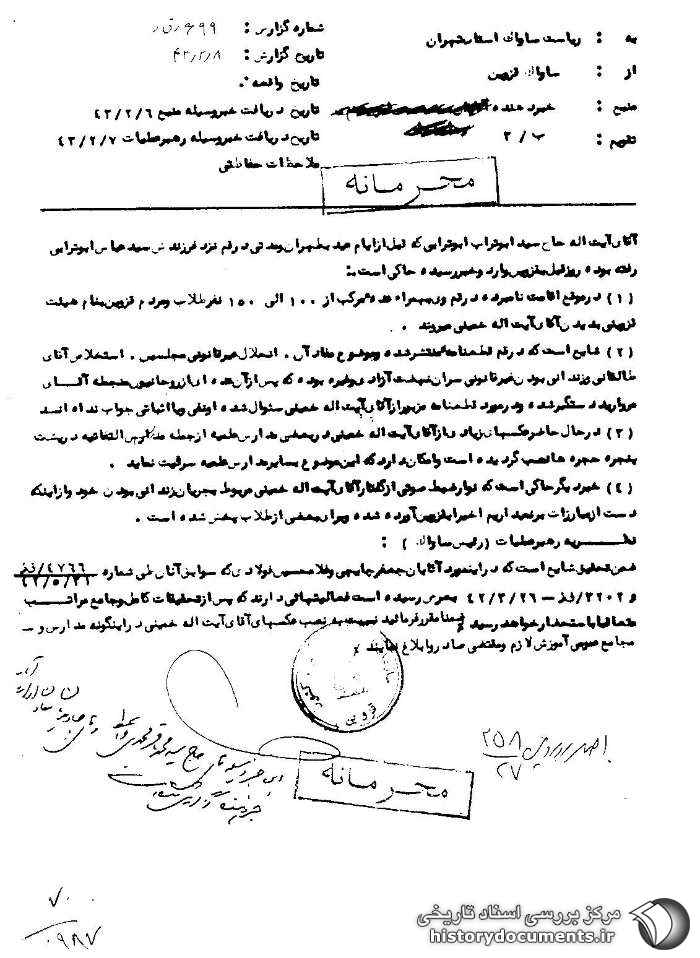 به : ریاست ساواک استان تهران
شماره گزارش : ۶۹۹
از : ساواک قزوین
تاریخ گزارش : ۴۳/۲/۸
تاریخ واقعه :
منبع : خبر دهنده
تاریخ دریافت خبر وسیله منبع ۴۳/۲/۶
تقویم : ب / ۲
تاریخ دریافت خبر وسیله رهبر عملیات ۴۳/۲/۷
ملاحظات حفاظتی
محرمانه
آقای آیت اله حاج سید ابوتراب ابوترابی که قبل از ایام عید بطهران و مدتی در قم نزد فرزندش سید عباس ابوترابی
رفته بوده روز قبل بقزوین وارد و خبر رسیده حاکی است :
(۱) در موقع اقامت نامبرده در قم وی بهمراه عده مرکب از ۱۰۰ الی ۱۵۰ نفر طلاب و مردم قزوین بنام هیئت
قزوینی بدیدن آقای آیت اله خمینی میروند .
(۲) شایع است که در قم قطعنامه منتشر شده و موضوع مفاد آن . انحلال غیر قانونی مجلسین . استخلاص آقای
طالقانی و زندانی بودن غیر قانونی سران نهضت آزادی و غیره بوده که پس از آن عده ای از روحانیون منجمله آقای
مروارید دستگیر شده و در مورد قطعنامه مزبور از آقای آیت اله خمینی سئوال شده او نفی و یا اثباتی جواب نداده اند
(۳) در حال حاضر عکسهای زیادی از آقای آیت اله خمینی در بعضی مدارس علمیه از جمله مدارس التفاتیه در پشت
پنجره حجره ها نصب گردیده است و امکان دارد که این موضوع بسایر مدارس علمیه سرایت نماید .
(۴) خبر دیگر حاکی است که نوار ضبط صوتی از گفتار آقای آیت اله خمینی مربوط بجریان زندانی بودن خود و از اینکه
دست از مبارزات بر نمیداریم اخیرا بقزوین آورده شده و برای بعضی از طلاب پخش شده است .
نظریه رهبر عملیات (رئیس ساواک) :
ضمن تحقیق شایع است که در اینمورد آقایان جعفر چایچی و غلامحسین فولادی که سوابق آنان طی شماره ۴۷۶۶/ق‌ز ۴۲/۵/۳۱
و ۳۲۰۲/ق‌ز – ۴۲/۳/۲۶ بعرض رسیده است فعالیتهائی دارند که پس از تحقیقات کامل و جامع مراتب
متعاقبا باستحضار خواهد رسید ضمنا مقرر فرمائید نسبت به نصب عکسهای آقای آیت اله خمینی در اینگونه مدارس و
مجامع عمومی آموزش لازم و مقتضی صادر و ابلاغ نمایند
قزوین
۲۵۸
۲۷
محرمانه
۷۰۰
۰۹۸۷
مرکز بررسی اسناد تاریخی
historydocuments.ir